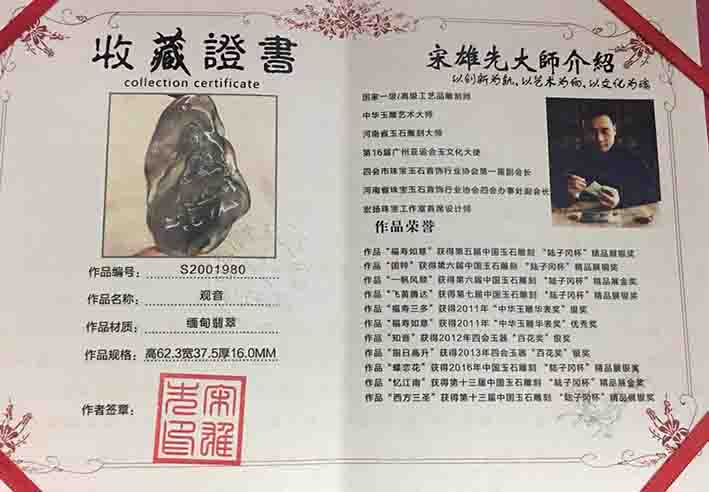 收藏證書
collection certificate
作品编号: S2001980
作品名称: 观音
作品材质: 缅甸翡翠
作品规格: 高62.3宽37.5厚16.0MM
作者签章:
宋雄先印
宋雄先大師介紹
以创新为轨、以艺术为向、以文化为魂
国家一级/高级工艺品雕刻师
中华玉雕艺术大师
河南省玉石雕刻大师
第16届广州亚运会玉文化大使
四会市珠宝玉石首饰行业协会第一届副会长
河南省珠宝玉石首饰行业协会四会办事处副会长
宏扬珠宝工作室首席设计师
作品荣誉
作品“福寿如意”获得第五届中国玉石雕刻 “陆子冈杯”精品展银奖
作品“国粹”获得第六届中国玉石雕刻 “陆子冈杯”精品展铜奖
作品“一帆风顺”获得第六届中国玉石雕刻 “陆子冈杯”精品展金奖
作品“飞黄腾达”获得第七届中国玉石雕刻 “陆子冈杯”精品展银奖
作品“福寿三多”获得2011年“中华玉雕华表奖”银奖
作品“福寿如意”获得2011年“中华玉雕华表奖”优秀奖
作品“知音”获得2012年四会玉器“百花奖”银奖
作品“指日高升”获得2013年四会玉器“百花奖”银奖
作品“蝶恋花”获得2016年中国玉石雕刻 “陆子冈杯”精品展银奖
作品“忆江南”获得第十三届中国玉石雕刻 “陆子冈杯”精品展金奖
作品“西方三圣”获得第十三届中国玉石雕刻 “陆子冈杯”精品展银奖